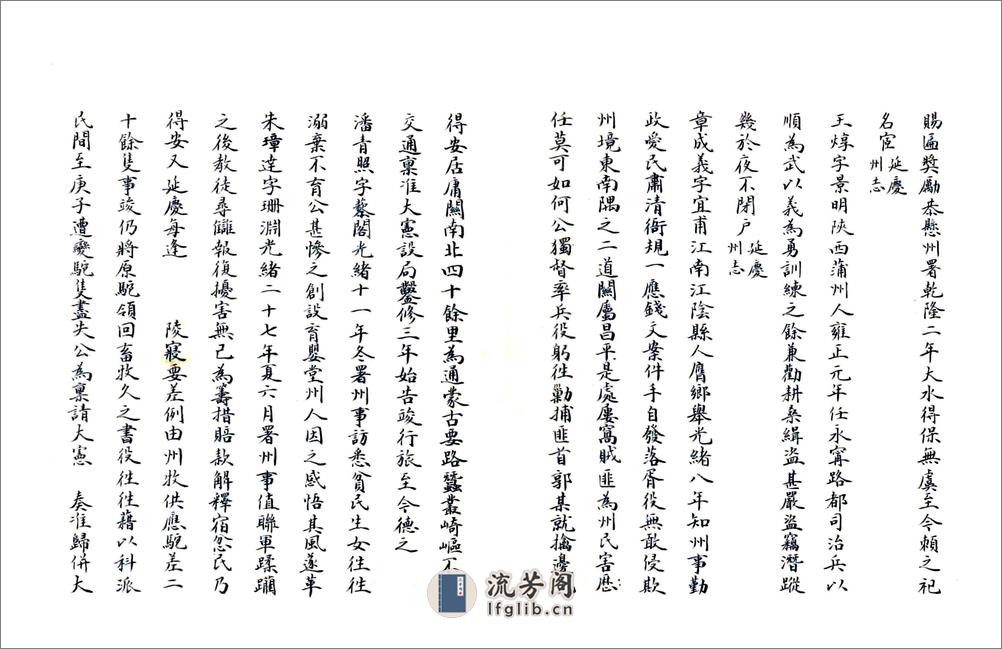 賜匾獎勵恭懸州署乾隆二年大水得保無虞至今賴之祀
名宦延慶州志
王焞字景明陝西蒲州人雍正元年任永寧路都司治兵以
順為武以義為勇訓練之餘兼勸耕桑緝盜甚嚴盜竊潛蹤
幾於夜不閉戶延慶州志
章成義字宜甫江南江陰縣人膺鄉舉光緒八年知州事勤
政愛民肅清衙規一應錢文案件手自發落胥役無敢侵欺
州境東南隅之二道關屬昌平是處屢窩賊匪為州民害歷
任莫可如何公獨督率兵役躬往勦捕匪首郭某就擒邊
得安居庸關南北四十餘里為通蒙古要路蠶叢崎嶇不
交通稟准大憲設局鑿修三年始告竣行旅至今德之
潘青照字藜閣光緒十一年冬署州事訪悉貧民生女往往
溺棄不育公甚慘之創設育嬰堂州人因之感悟其風遂革
朱璋達字珊淵光緒二十七年夏六月署州事值聯軍蹂躪
之後教徒尋讎報復擾害無已為籌措賠款解釋宿忿民乃
得安又延慶每逢 陵寢要差例由州牧供應駝差二
十餘隻事竣仍將原駝領回畜牧久之書役往往藉以科派
民間至庚子遭變駝隻盡失公為稟請大憲 奏准歸併大
流芳閣
lfglib.cn